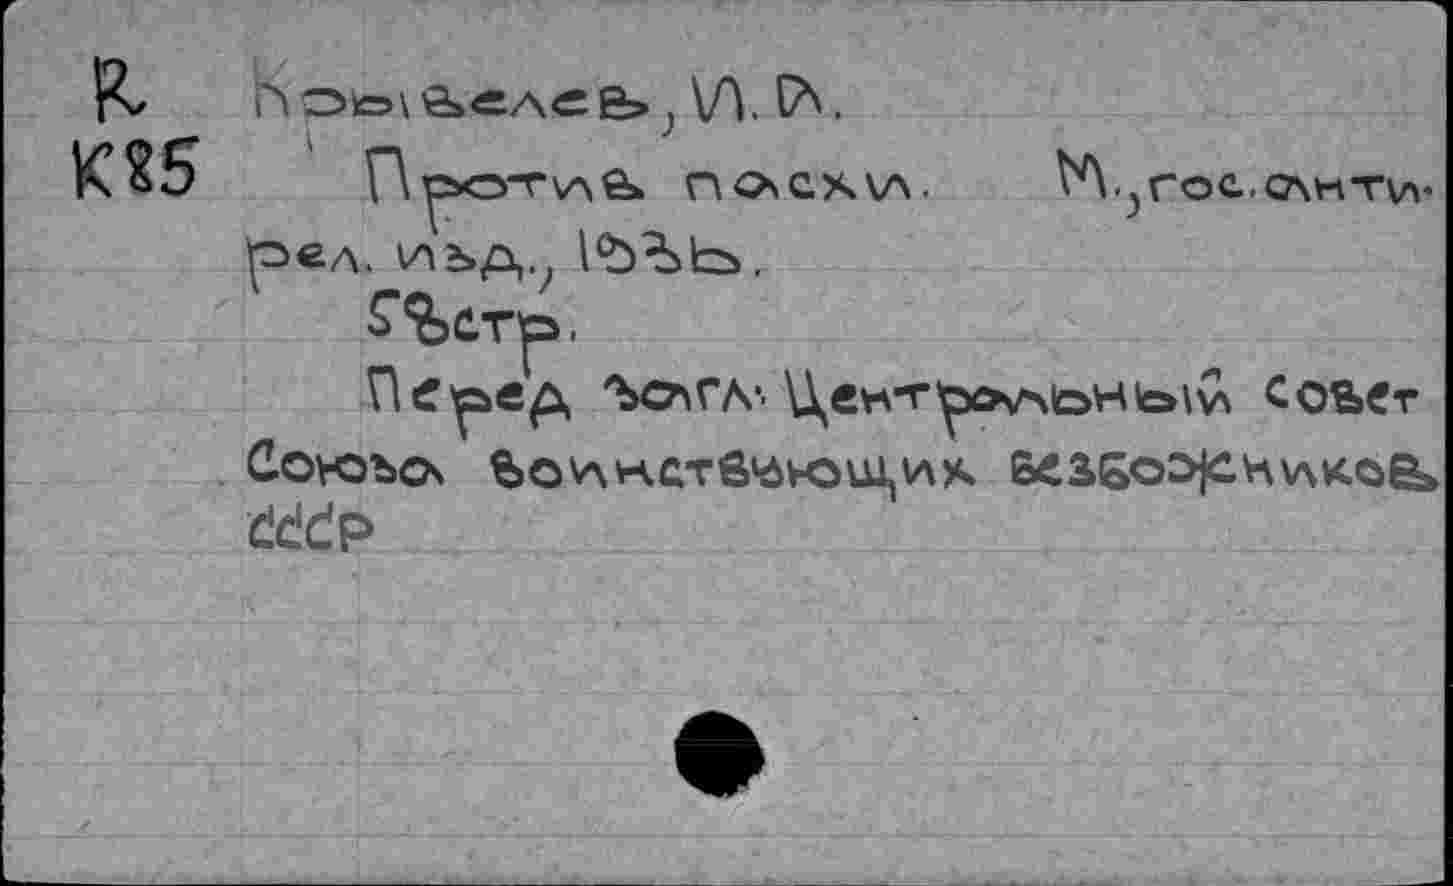 R Крывелев, И. А.
K85 Против пасхи. М., гос. анти-
рел. изд., 1936.
58стр.
Перед загл: Центральный Совет
Союза воинствующих безбожников
СССР